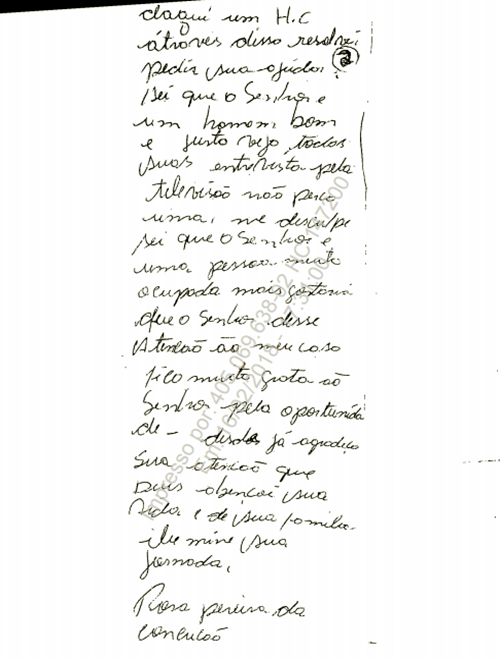 daqui um H.C
átroves disso resolvi
pedir sua ajudar. 2
sei que o Senhor e
um homem bom
e justo vejo todas
suas entrevista pela
televisão não perco
uma, me desculpe
sei que o Senhor e
uma pessoa muito
ocupada mais gostaria
que o Senhor desse
Atencaõ ão meu caso
fico muito grata aõ
Senhor pela oportunida
de - desde já agradeço
Sua atencaõ que
Deus abencoi sua
vida e de sua familia
ilumine sua
jornada,
Rosa pereira da
conceicaõ
Impresso por: 405.069.638-02 HC 137200
Em: 16/02/2018 -